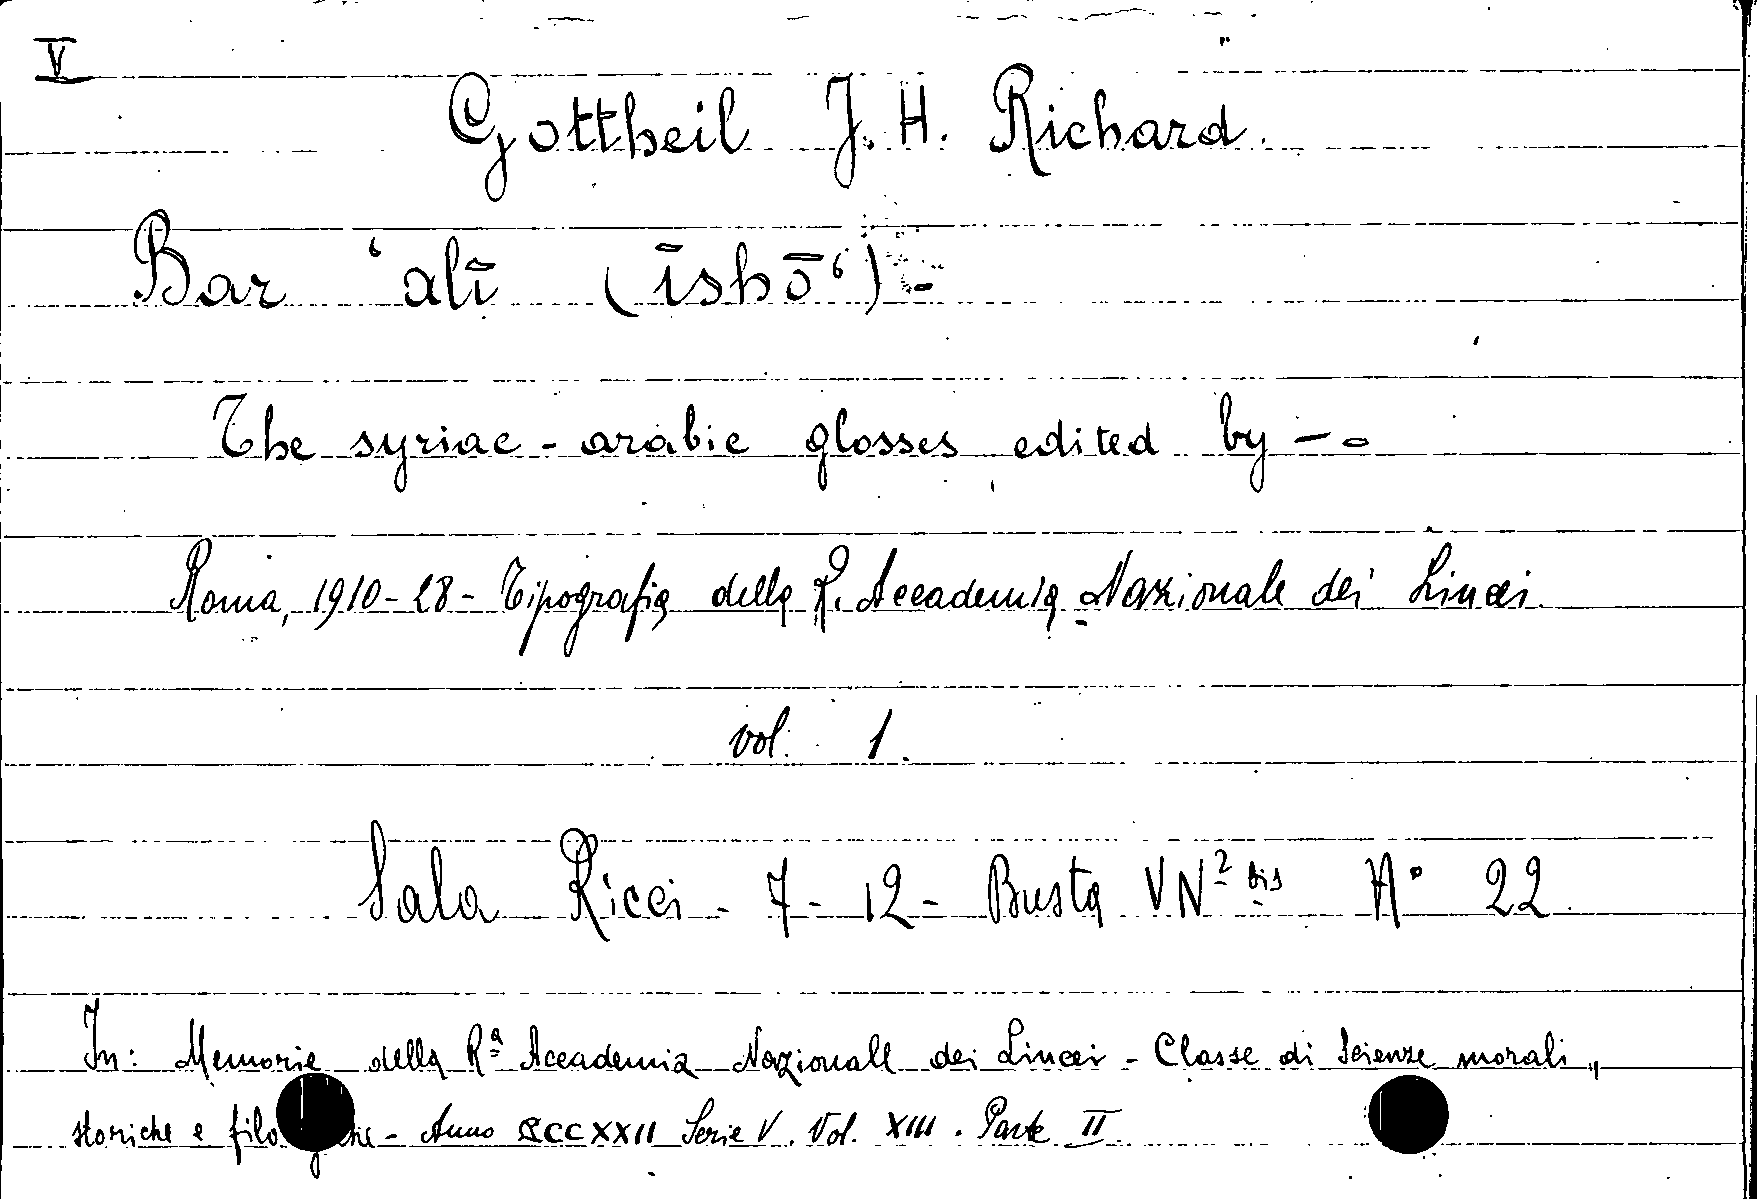 V
Gottheil J. H. Richard.
Bar ʿalī (īshōʿ) -
The syriac - arabic glosses edited by - -
Roma, 1910-28 - Tipografia della R. Accademia Nazionale dei Lincei.
vol. 1.
Sala Ricci - 7 - 12 - Busta VN² bis N° 22.
In: Memorie della Rª Accademia Nazionale dei Lincei - Classe di Scienze morali,
storiche e - Anno CCCXXII Serie V. Vol. XIII. Parte II